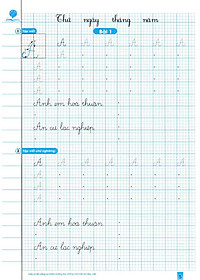 Thứ ngày tháng năm
Bài 1
1 Tập viết
A A A A A A A
A
A
A
Anh em hoà thuận
An cư lạc nghiệp
2 Tập viết chữ nghiêng
A A A A A A A
A
A
A
Anh em hoà thuận
An cư lạc nghiệp